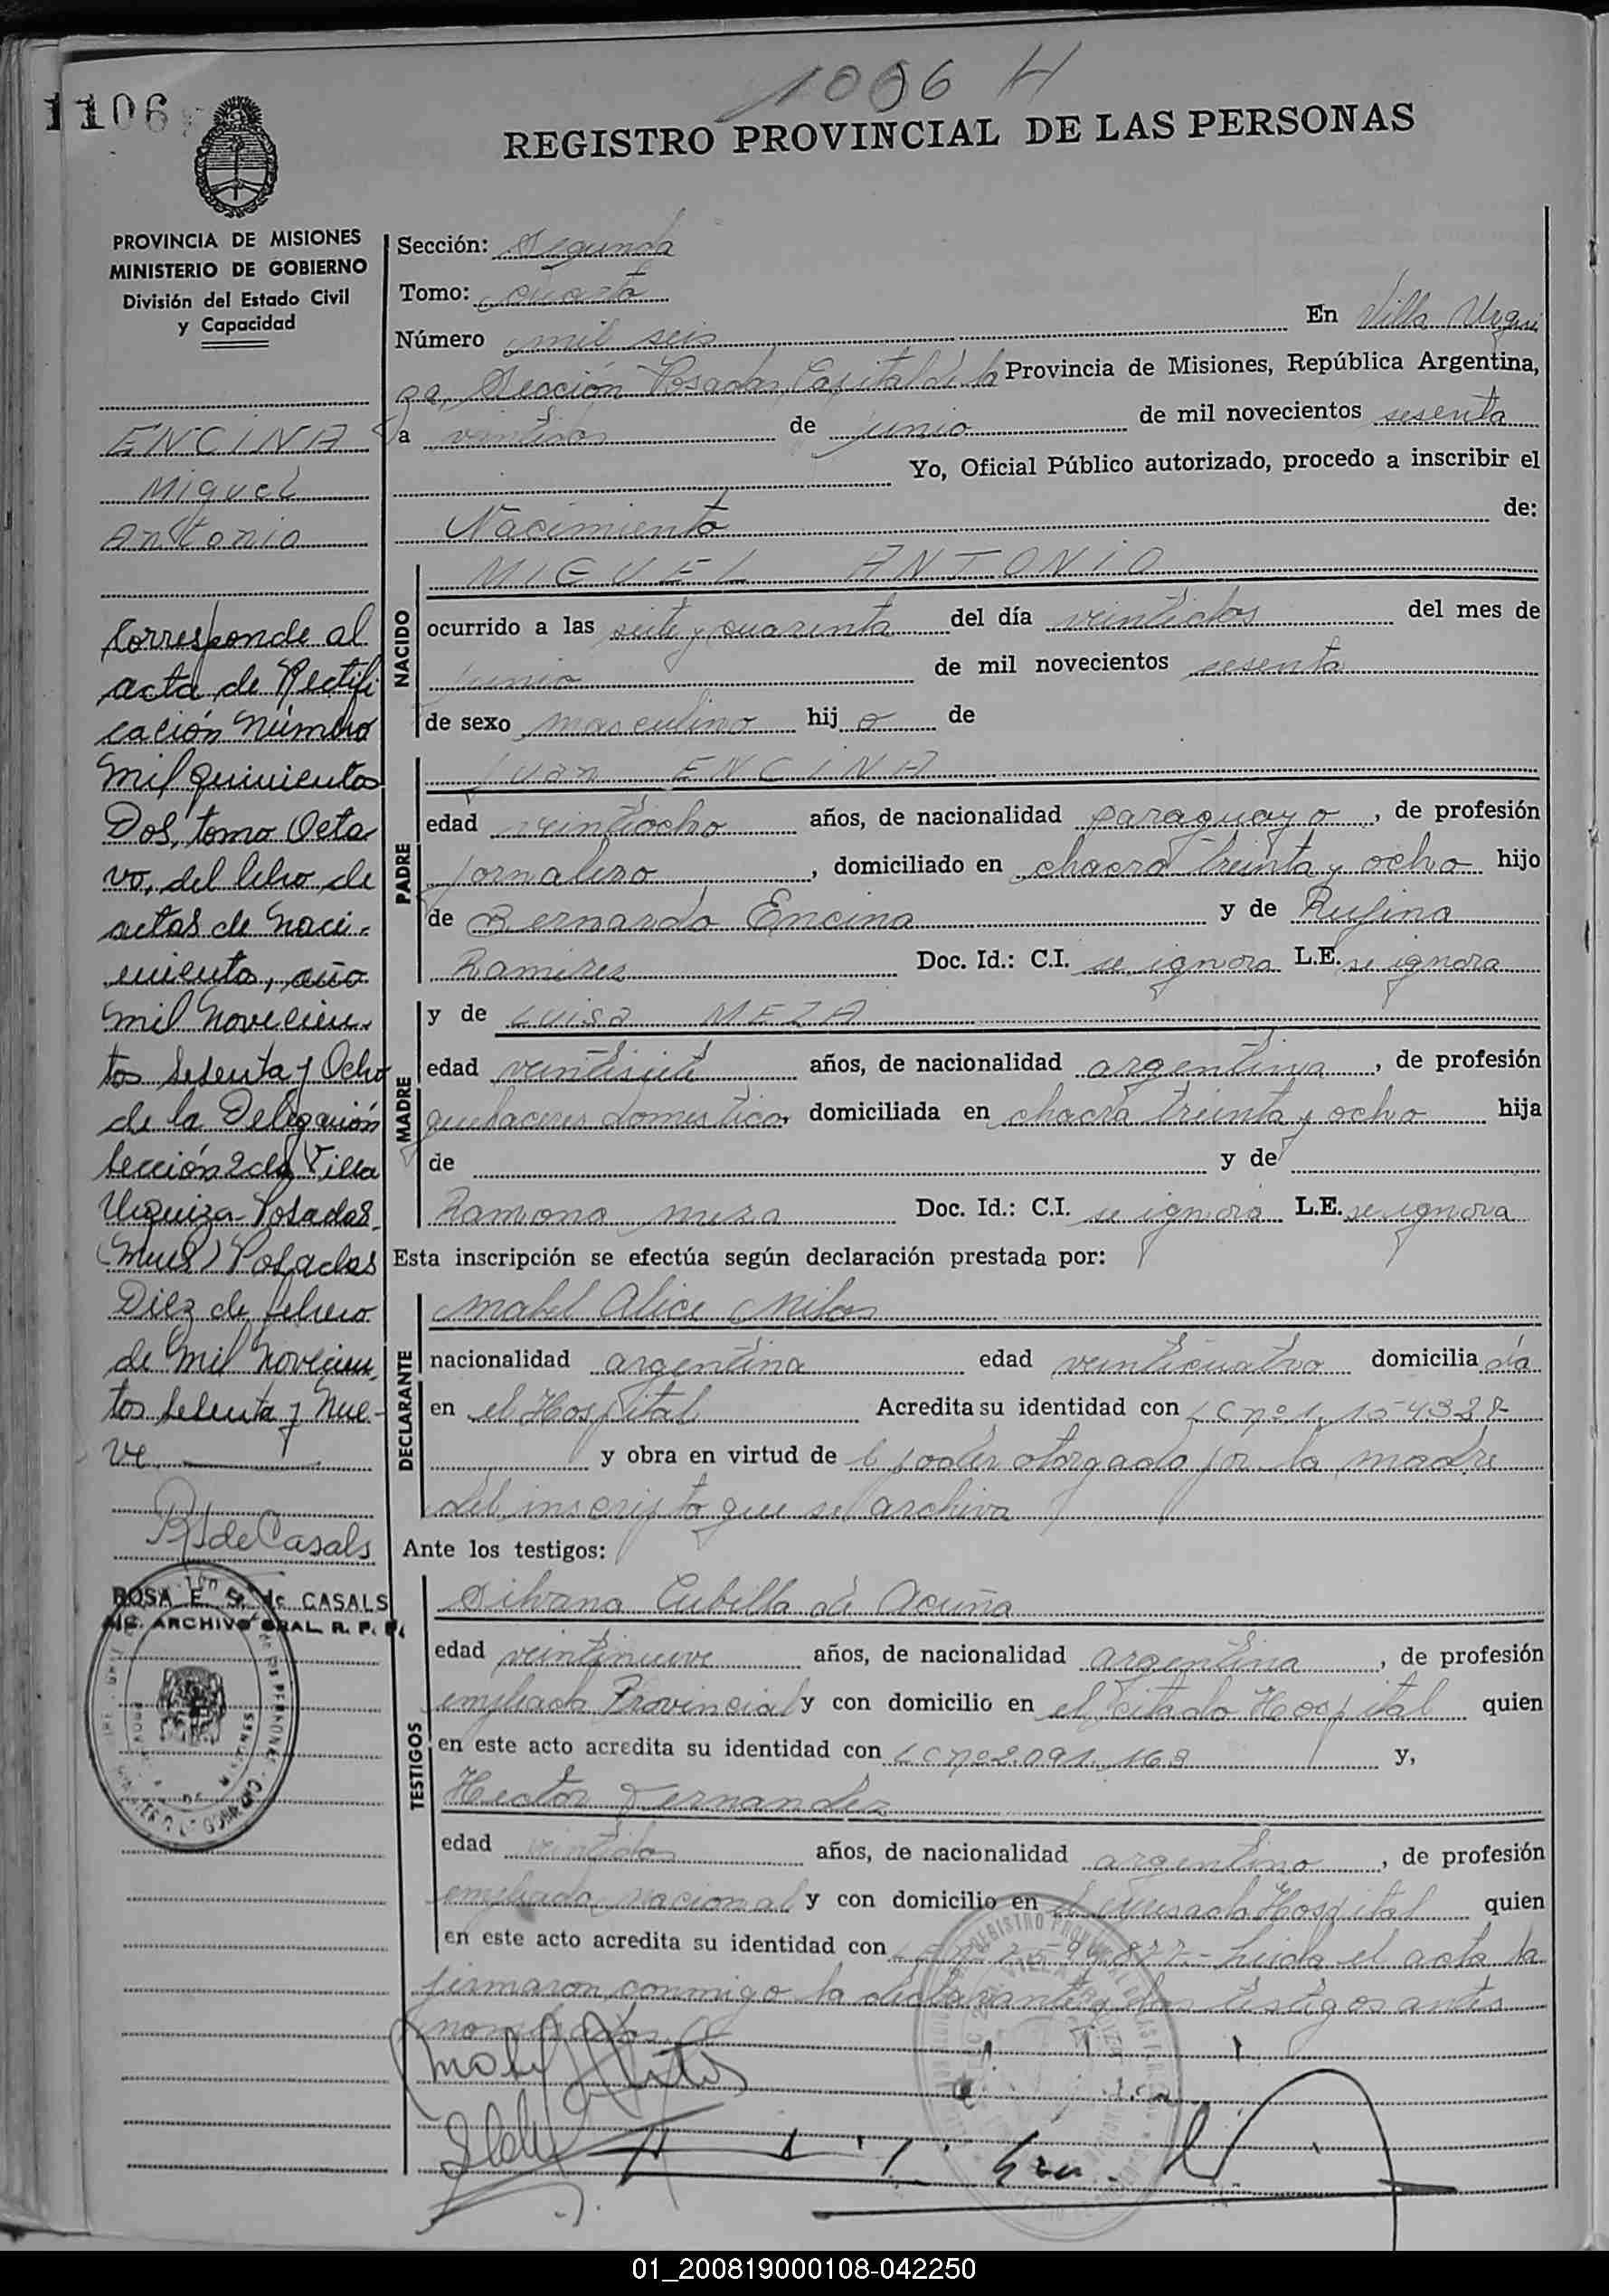 1006 H
1106
REGISTRO PROVINCIAL DE LAS PERSONAS
PROVINCIA DE MISIONES
MINISTERIO DE GOBIERNO
División del Estado Civil
y Capacidad
ENCINA
Miguel
Antonio
Corresponde al
acta de Rectifi
cación Número
Mil quinientos
Dos, tomo Octa
vo, del libro de
actas de naci-
miento, año
mil novecien-
tos sesenta y Ocho
de la Delegación
Sección 2da Villa
Urquiza-Posadas-
Posadas
Diez de febrero
de mil novecien
tos sesenta y nue-
ve
R de Casals
ROSA E. S. de CASALS
ARCHIVO GRAL. R. P. P.
Sección: Segunda
Tomo: cuarto
Número mil seis En Villa Urqui
za, Sección Posadas, Capital de la Provincia de Misiones, República Argentina,
a veintidos de junio de mil novecientos sesenta
Yo, Oficial Público autorizado, procedo a inscribir el
Nacimiento de:
NACIDO
MIGUEL ANTONIO
ocurrido a las siete y cuarenta del día veintidos del mes de
junio de mil novecientos sesenta
de sexo masculino hijo de
PADRE
Juan ENCINA
edad veintiocho años, de nacionalidad paraguayo, de profesión
jornalero, domiciliado en chacra treinta y ocho hijo
de Bernardo Encina y de Rufina
Ramirez Doc. Id.: C.I. se ignora L.E. se ignora
MADRE
y de Luisa MEZA
edad veintisiete años, de nacionalidad argentina, de profesión
quehaceres domesticos, domiciliada en chacra treinta y ocho hija
de y de
Ramona meza Doc. Id.: C.I. se ignora L.E. se ignora
Esta inscripción se efectúa según declaración prestada por:
DECLARANTE
Mabel Alice Milos
nacionalidad argentina edad veinticuatro domiciliada
en el Hospital Acredita su identidad con LC nº 1.154.328
y obra en virtud de poder otorgado por la madre
del inscripto que se archiva
Ante los testigos:
TESTIGOS
Silvana Cubilla de Acuña
edad veintinueve años, de nacionalidad argentina, de profesión
empleada Provincial y con domicilio en el citado Hospital quien
en este acto acredita su identidad con LC nº 2.091.168 y,
Hector Fernandez
edad veintidos años, de nacionalidad argentino, de profesión
empleado nacional y con domicilio en el Hospital quien
en este acto acredita su identidad con Leida el acta la
firmaron conmigo la declarante y los testigos antes
nombrados
01_200819000108-042250